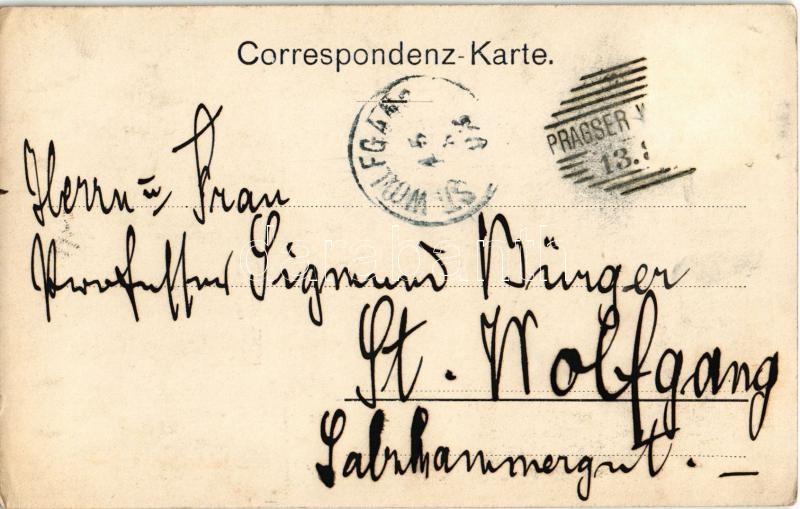 Correspondenz-Karte.
ST. WOLFGANG
PRAGSER
13.
Herrn u Frau
Professor Sigmund Bürger
St. Wolfgang
Salzkammergut.
darabanth